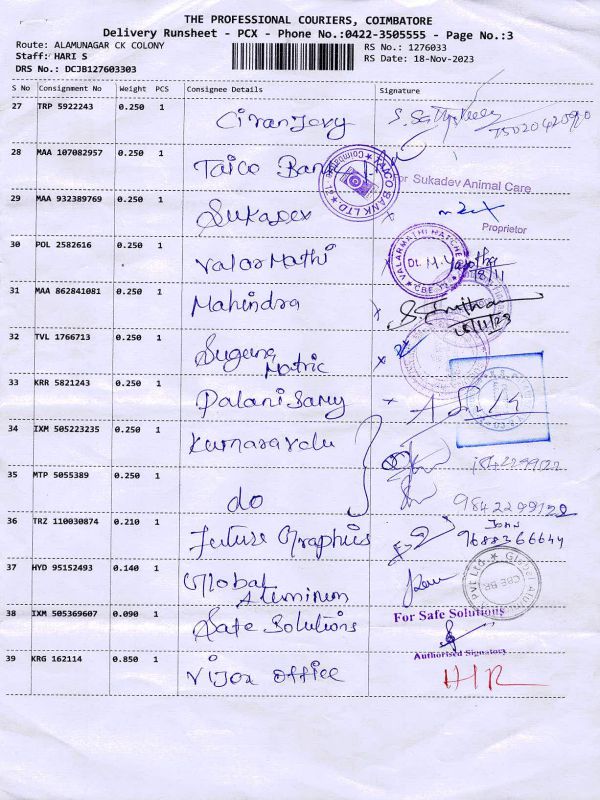 THE PROFESSIONAL COURIERS, COIMBATORE
Delivery Runsheet - PCX - Phone No.:0422-3505555 - Page No.:3
Route: ALAMUNAGAR CK COLONY
RS No.: 1276033
Staff: HARI S
RS Date: 18-Nov-2023
DRS No.: DCJB127603303
S No Consignment No Weight PCS Consignee Details Signature
27 TRP 5922243 0.250 1 Ciranjevy
28 MAA 107082957 0.250 1 Taico Bank
TAICO BANK LTD
For Sukadev Animal Care
29 MAA 932389769 0.250 1 Sukadev
Proprietor
30 POL 2582616 0.250 1 Valarmathi
VALARMATHI MATCHES
Dt.
CBE
18/11
31 MAA 862841081 0.250 1 Mahindra
18/11/23
32 TVL 1766713 0.250 1 Suguna Matric
33 KRR 5821243 0.250 1 Palanisamy
34 IXM 505223235 0.250 1 Kumaravelu
35 MTP 5055389 0.250 1 do
36 TRZ 110030874 0.210 1 Future Graphics
JOHN
9688366644
37 HYD 95152493 0.140 1 Global Aluminum
Pvt Ltd. Global
CBE BR
38 IXM 505369607 0.090 1 Safe Solutions
For Safe Solutions
Authorised Signatory
39 KRG 162114 0.850 1 Vijay Office